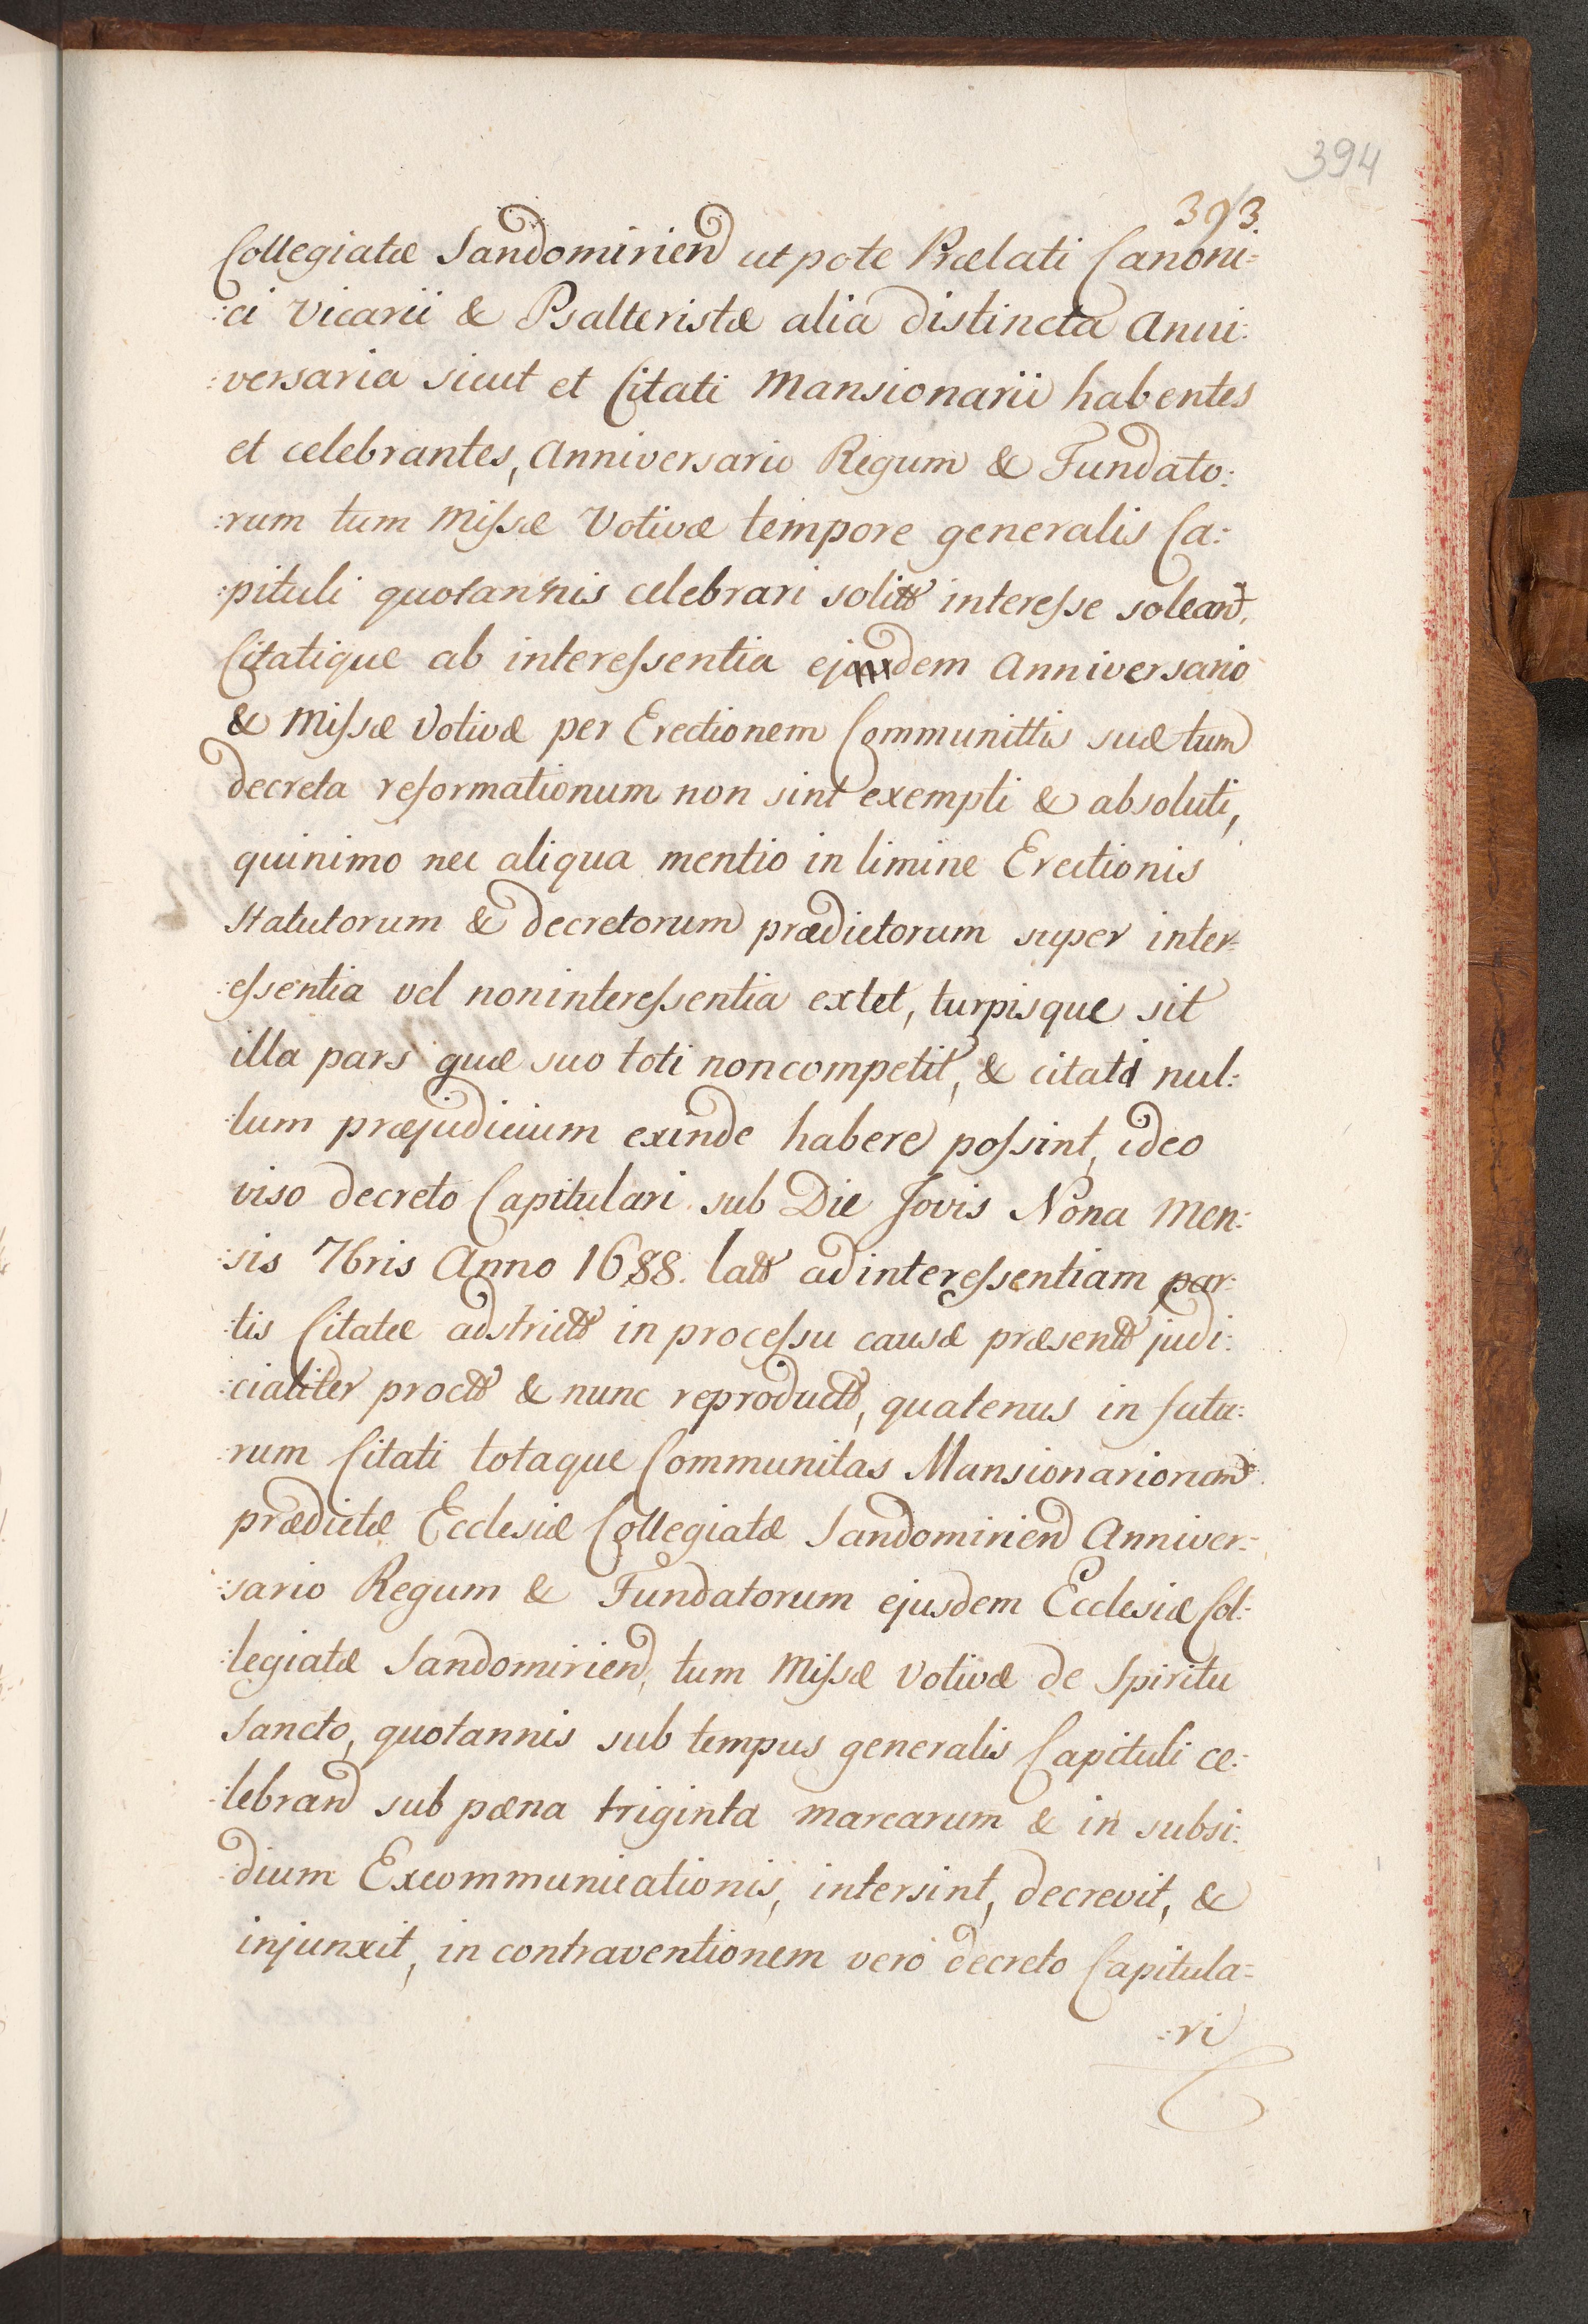 394
393.
Collegiatæ Sandomirien ut pote Prælati Canoni=
:ci Vicarii & Psalteristæ alia distincta Anni:
:versaria sicut et Citati Mansionarii habentes
et celebrantes, Anniversario Regum & Fundato:
:rum tum Missæ Votivæ tempore generalis Ca:
:pituli quotannis celebrari solitt interesse soleant,
Citatique ab interessentia ejusdem Anniversario
& Missæ Votivæ per Erectionem Communittis suæ tum
decreta reformationum non sint exempti & absoluti,
quinimo nec aliqua mentio in limine Erectionis
Statutorum & decretorum prædictorum super inter=
:essentia vel noninteressentia extet, turpisque sit
illa pars quæ suo toti noncompetit, & citati nul:
:lum præjudicium exinde habere possint, ideo
viso decreto Capitulari sub Die Jovis Nona Men:
:sis 7bris Anno 1688. latt ad interessentiam par:
:tis Citatæ adstrictt in processu causæ præsentt judi:
:cialiter productt & nunc reproductt, quatenus in futu:
:rum Citati totaque Communitas Mansionariorum
prædictæ Ecclesiæ Collegiatæ Sandomirien Anniver=
:sario Regum & Fundatorum ejusdem Ecclesiæ Col:
:legiatæ Sandomirien, tum Missæ Votivæ de Spiritu
Sancto, quotannis sub tempus generalis Capituli ce:
:lebrand sub pæna triginta marcarum & in subsi:
:dium Excommunicationis, intersint, decrevit, &
injunxit, in contraventionem vero decreto Capitula=
:ri